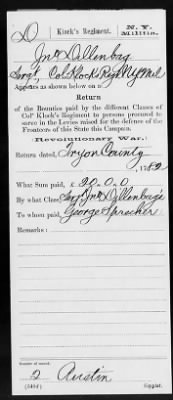 D Klock's Regiment. N. Y. Militia.
Jno Dillenbag
Sergt, Col. Klock's Regt NY Mil
Appears as shown below on a
Return
of the Bounties paid by the different Classes of
Colo Klock's Regiment to persons procured to
serve in the Levies raised for the defence of the
Fronteers of this State this Campain.
Revolutionary War.
Return dated, Tryon County
, 1782
What Sum paid, £ 20.0.0
By what Class, Sergt Jno Dillenbag's
To whom paid, George Spracher
Remarks:
Number of record:
2 Austin
Copyist.